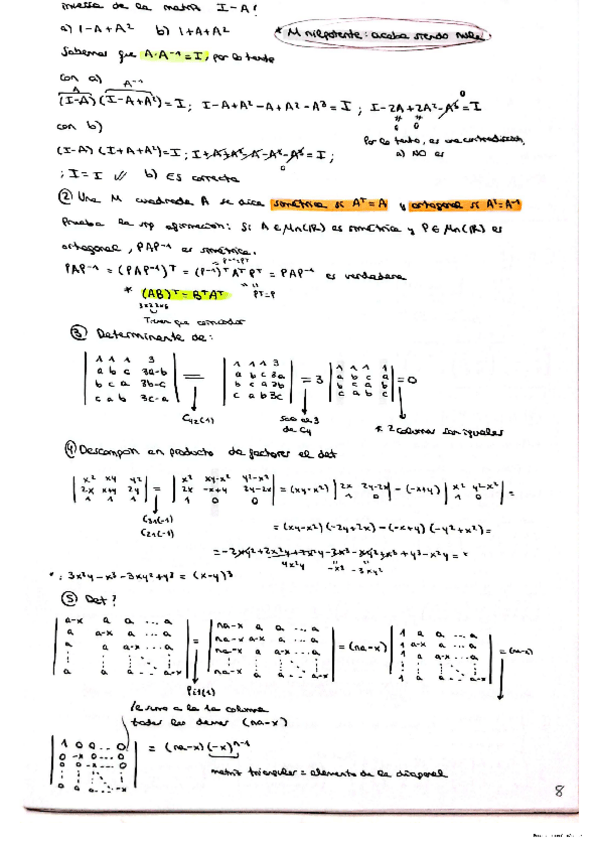 inversa de la matriz I-A?
a) I-A+A² b) I+A+A² * M nilpotente: acaba siendo nula.
Sabemos que A·A⁻¹=I, por lo tanto
con a) A A⁻¹
(I-A)(I-A+A²)=I; I-A+A²-A+A²-A³=I; I-2A+2A²-A³=I
0
con b) Por lo tanto, es una contradicción,
(I-A)(I+A+A²)=I; I+A+A²-A-A²-A³=I; a) NO es
; I=I b) Es correcta
② Una M cuadrada A se dice simétrica si Aᵀ=A y ortogonal si Aᵗ=A⁻¹
Prueba la afirmación: Si A∈Mn(R) es simétrica y P∈Mn(R) es
ortogonal, PAP⁻¹ es simétrica.
PAP⁻¹=(PAP⁻¹)ᵀ=(P⁻¹)ᵀAᵀPᵀ=PAP⁻¹ es verdadera
* (AB)ᵀ=BᵀAᵀ
Tienen que coincidir
③ Determinante de:
1 1 1 3 1 1 1 3 1 1 1 1
a b c 3a-b a b c 3a a b c a
b c a 3b-c = b c a 3b = 3 b c a b = 0
c a b 3c-a c a b 3c c a b c
C42(1) saco el 3 * 2 columnas son iguales
de C4
④ Descompon en producto de factores el det
x² xy y² x² xy-x² y²-x²
2x x+y 2y = 2x -x+y 2y-2x = (xy-x²) 2x 2y-2x -(-x+y) x² y²-x² =
1 1 1 1 0 0 1 0 1 0
C31(-1)
C21(-1) = (xy-x²)(-2y+2x)-(-x+y)(-y²+x²)=
4x²y -x³ -3xy²
*: 3x²y-x³-3xy²+y³=(x-y)³
⑤ Det?
a-x a a ... a na-x a a ... a 1 a a ... a
a a-x a ... a na-x a-x a ... a 1 a-x a ... a
a a a-x ... a = na-x a a-x ... a = (na-x) 1 a a-x ... a = (na-x)
P1i(1)
le sumo a la 1a columna
todas las demás (na-x)
1 0 0 ... 0
0 -x 0 ... 0 = (na-x)(-x)ⁿ⁻¹
matriz triangular = elemento de la diagonal
8